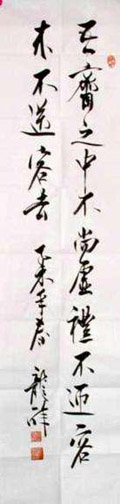 吾齋之中不尚虛禮不迎客
來不送客去 年春 龍祥